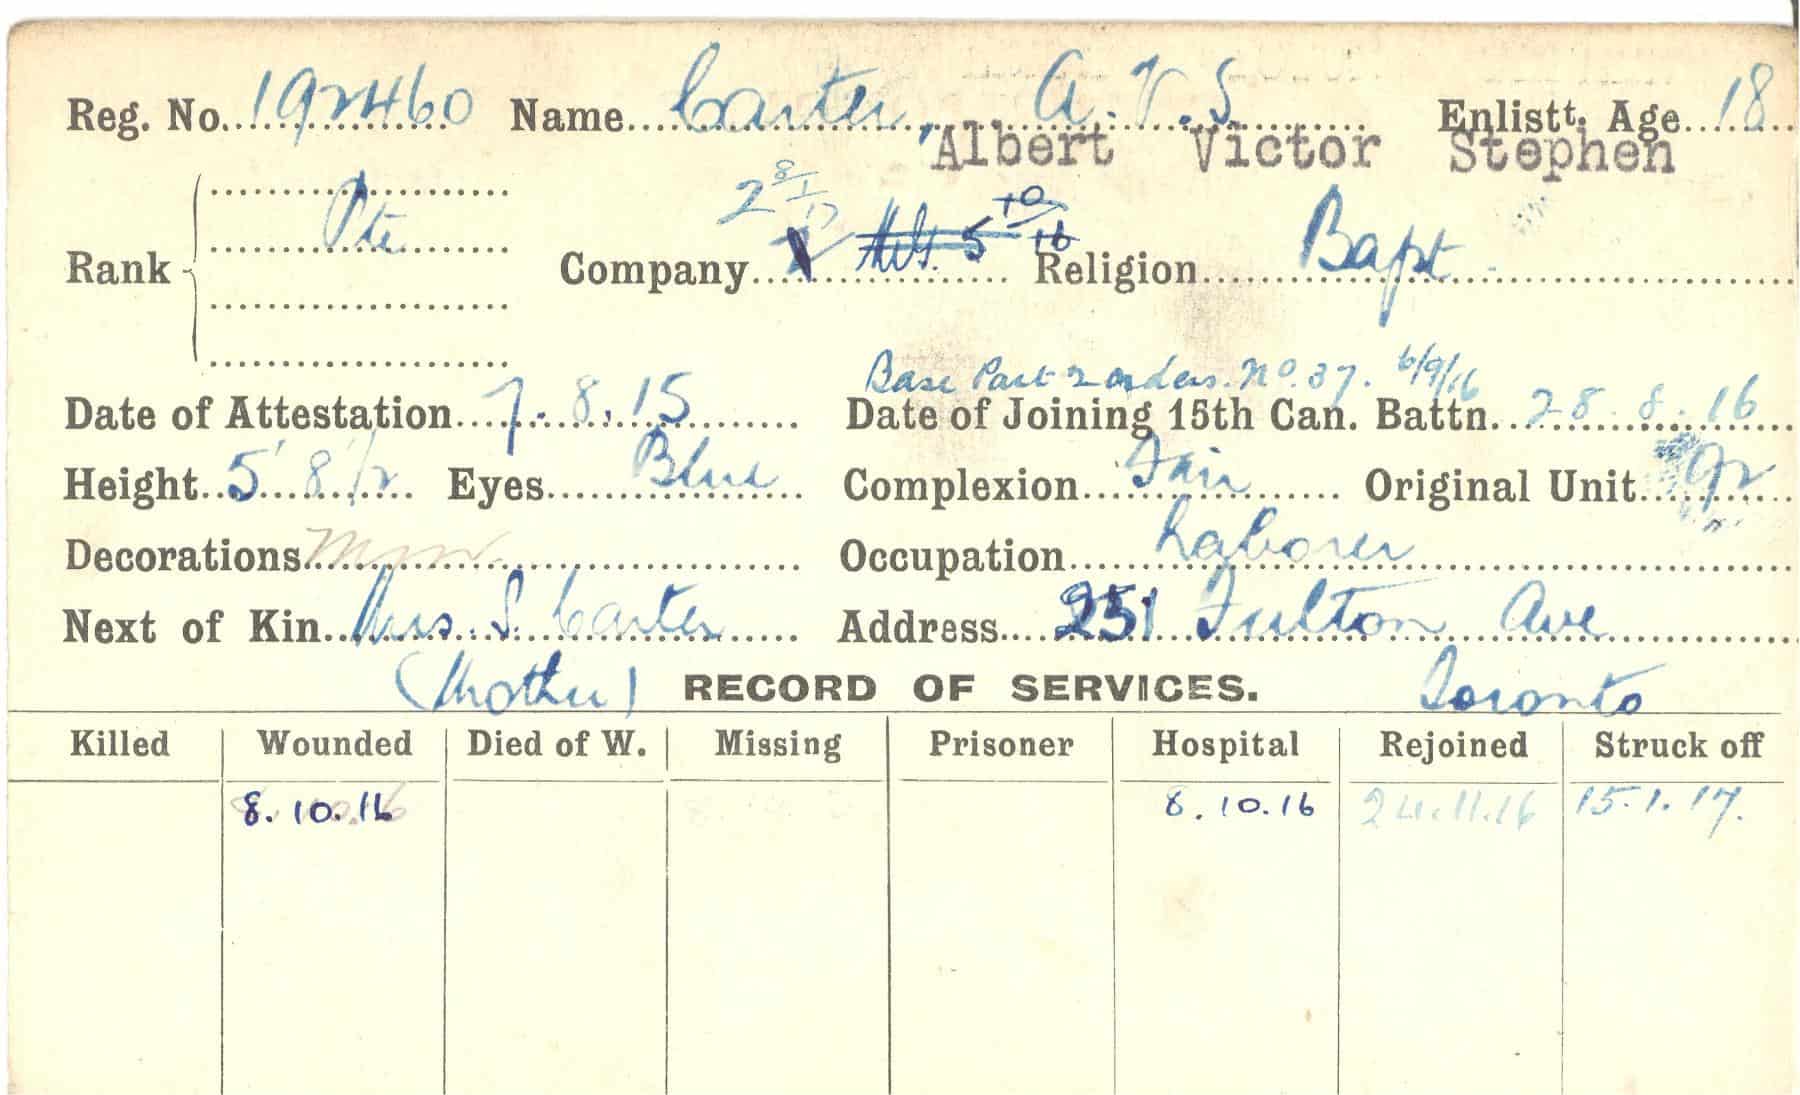 Reg. No. 192460 Name Carter, A. V. S. Enlistt. Age 18
Albert Victor Stephen
Rank Pte Company 2 8/1/17 5 10/16 Religion Bapt
Base Part 2 orders. No. 37. 6/9/16
Date of Attestation 7.8.15 Date of Joining 15th Can. Battn. 28.8.16
Height 5' 8 1/2 Eyes Blue Complexion Fair Original Unit 92
Decorations Occupation Laborer
Next of Kin Mrs. S. Carter Address 251 Fulton Ave
(Mother) RECORD OF SERVICES. Toronto
Killed Wounded Died of W. Missing Prisoner Hospital Rejoined Struck off
8.10.16 8.10.16 24.11.16 15.1.17.